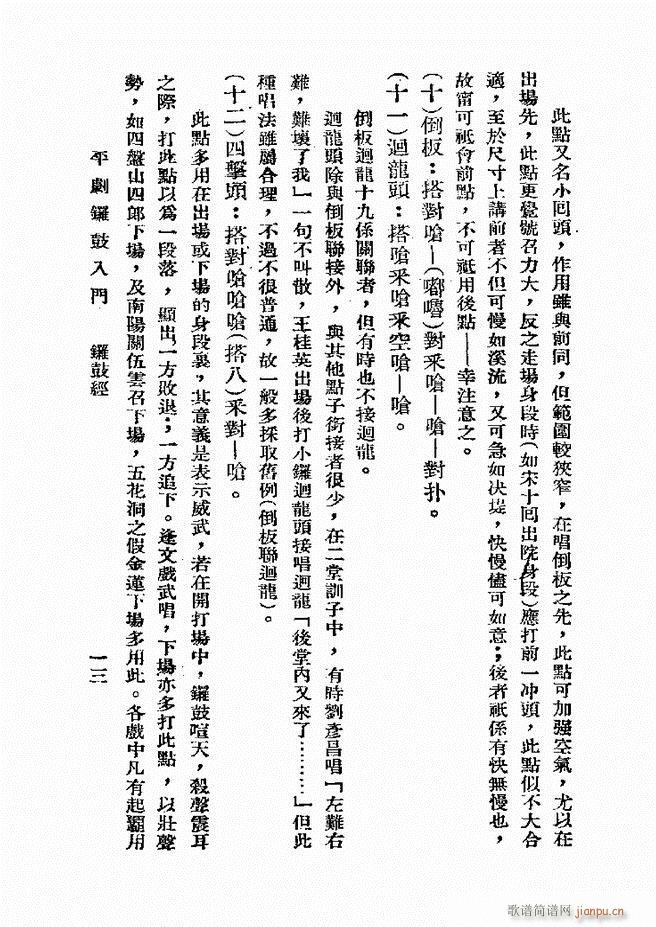 此點又名小回頭，作用雖與前同，但範圍較狹窄，在唱倒板之先，此點可加强空氣，尤以在
出場先，此點更覺號召力大，反之走場身段時（如宋十回出院身段）應打前一冲頭，此點似不大合
適，至於尺寸上講前者不但可慢如溪流，又可急如決堤，快慢儘可如意；後者祇係有快無慢也，
故甯可祇會前點，不可祇用後點——幸注意之。
（十）倒板：搭對嗆—（嘟嚕）對釆嗆—嗆—對扑。
（十一）迴龍頭：搭嗆釆嗆釆空嗆—嗆。
倒板迴龍十九係關聯者，但有時也不接迴龍。
迴龍頭除與倒板聯接外，與其他點子銜接者很少，在二堂訓子中，有時劉彥昌唱「左難右
難，難壞了我」一句不叫散，王桂英出場後打小鑼迴龍頭接唱迴龍「後堂內又來了………」但此
種唱法雖屬合理，不過不很普通，故一般多採取舊例（倒板聯迴龍）。
（十二）四擊頭：搭對嗆嗆嗆（搭八）釆對—嗆。
此點多用在出場或下場的身段裏，其意義是表示威武，若在開打場中，鑼鼓喧天，殺聲震耳
之際，打此點以爲一段落，顯出一方敗退；一方追下。逢文戲武唱，下場亦多打此點，以壯聲
勢，如四盤山四郎下場，及南陽關伍雲召下場，五花洞之假金蓮下場多用此。各戲中凡有起霸用
平劇鑼鼓入門　鑼鼓經　一三
歌谱简谱网 jianpu.cn